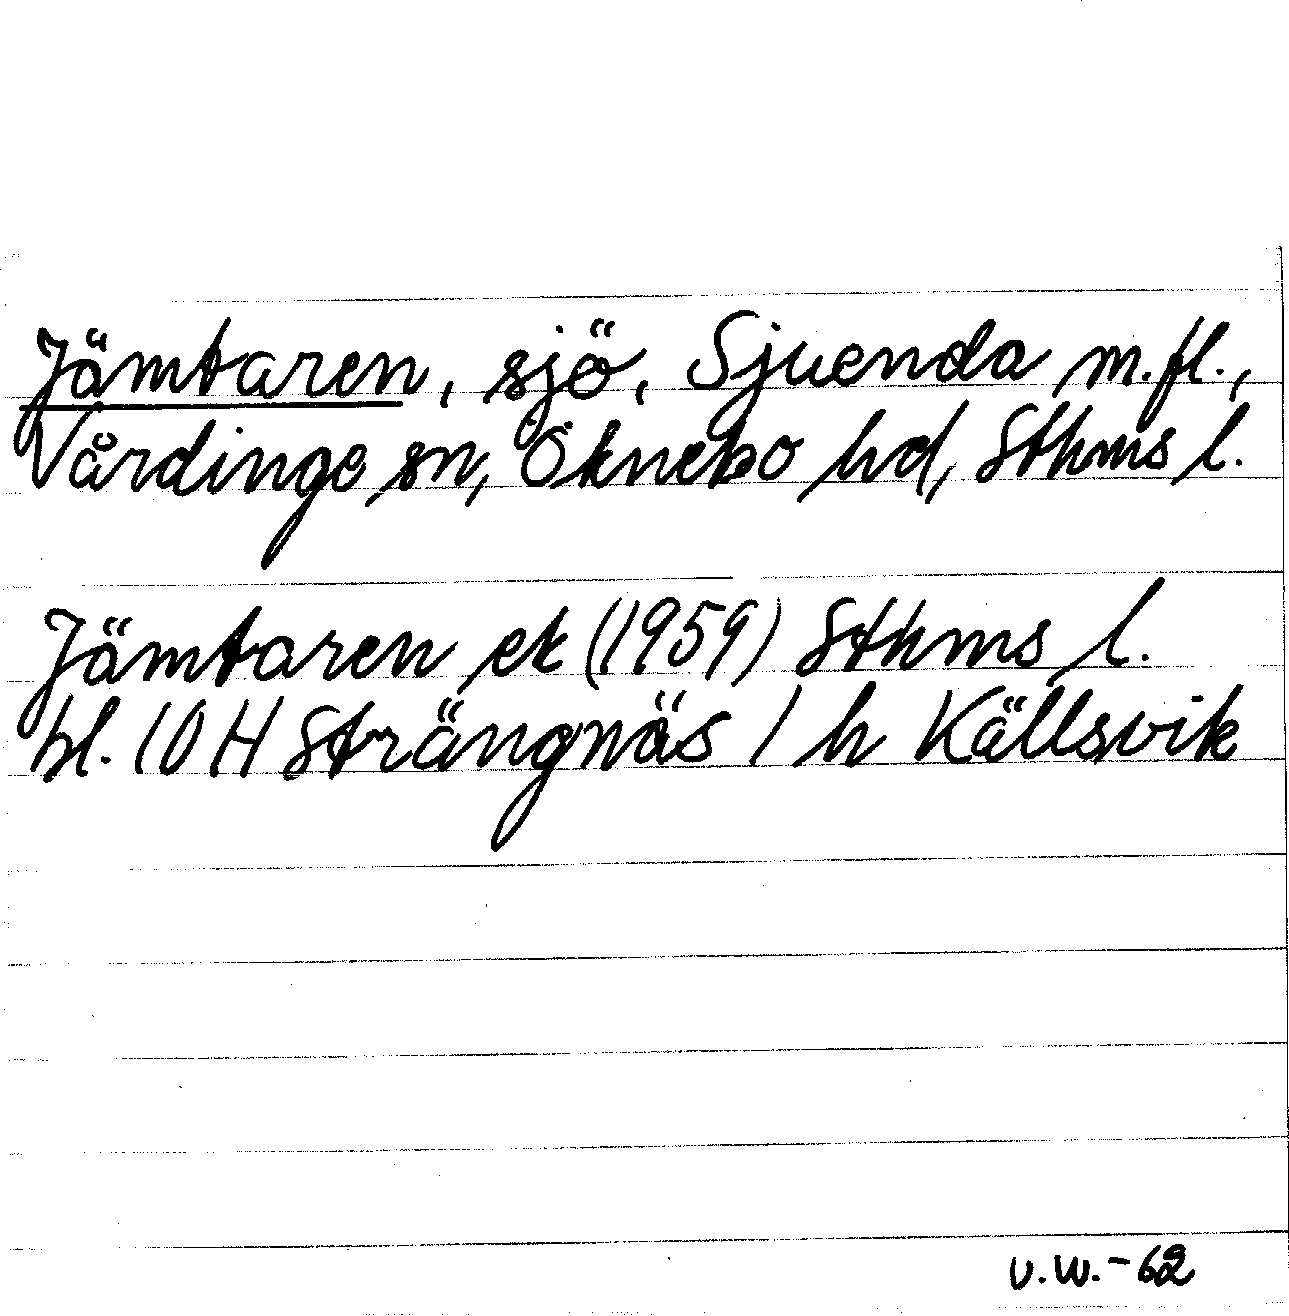 Jämtaren, sjö, Sjuenda m.fl.,
Vårdinge sn, Öknebo hd, Sthms l.
Jämtaren ek (1959) Sthms l.
bl. 10 H Strängnäs 1 h Källsvik
U.W.-62